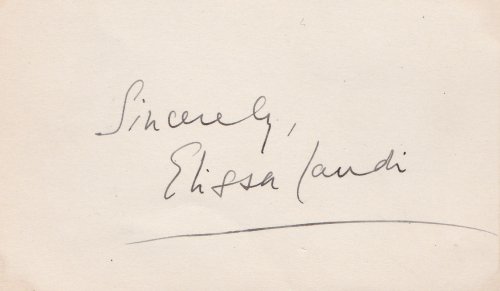 Sincerely,
Elissa Landi